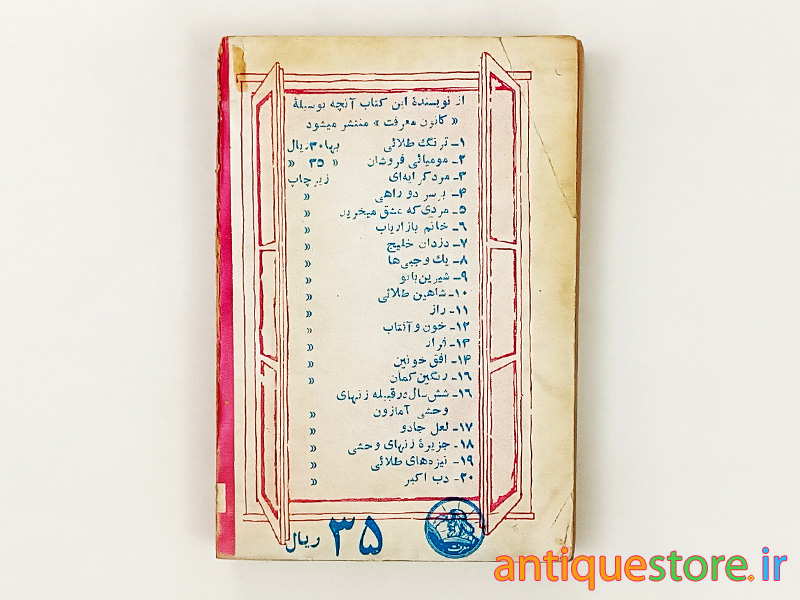 از نویسندهٔ این کتاب آنچه بوسیلهٔ
« کانون معرفت » منتشر میشود
۱ـ ترنگ طلائی بها ۳۰ ریال
۲ـ مومیائی فروشان » ۳۵ »
۳ـ مرد کرایه‌ای زیر چاپ
۴ـ بر سر دو راهی »
۵ـ مردی که عشق میخرید »
۶ـ خانم بازاریاب »
۷ـ دزدان خلیج »
۸ـ یك وجبی‌ها »
۹ـ شیرین بانو »
۱۰ـ شاهین طلائی »
۱۱ـ راز »
۱۲ـ خون و آفتاب »
۱۳ـ فرار »
۱۴ـ افق خونین »
۱۶ـ رنگین کمان »
۱۶ـ شش سال در قبیله زنهای
وحشی آمازون »
۱۷ـ لعل جادو »
۱۸ـ جزیرهٔ زنهای وحشی »
۱۹ـ نیزه‌های طلائی »
۲۰ـ دب اکبر »
۳۵ ریال
antiquestore.ir